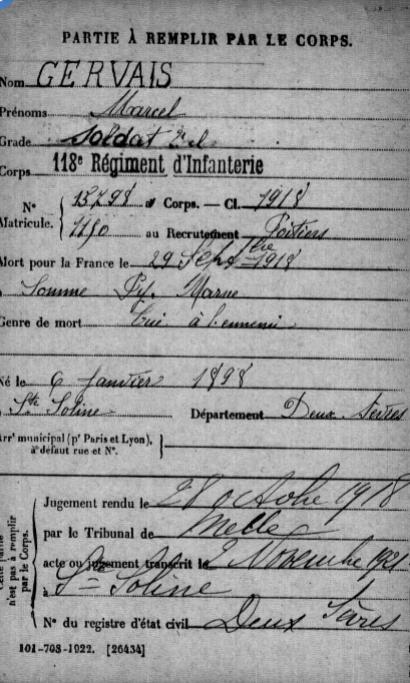 PARTIE À REMPLIR PAR LE CORPS.
Nom GERVAIS
Prénoms Marcel
Grade Soldat 2e cl
Corps 118e Régiment d'Infanterie
N° 15798 au Corps. — Cl. 1918
Matricule. 1190 au Recrutement Poitiers
Mort pour la France le 29 Septbre 1918
à Somme Py. Marne
Genre de mort Tué à l'ennemi
Né le 6 Janvier 1898
à Ste Soline Département Deux Sèvres
Arrt municipal (pr Paris et Lyon),
à défaut rue et N°.
Cette partie
n'est pas à remplir
par le Corps.
Jugement rendu le 28 octobre 1918
par le Tribunal de Melle
acte ou jugement transcrit le 2 Novembre 1921
à Ste Soline
N° du registre d'état civil Deux Sèvres
101-708-1922. [26434]